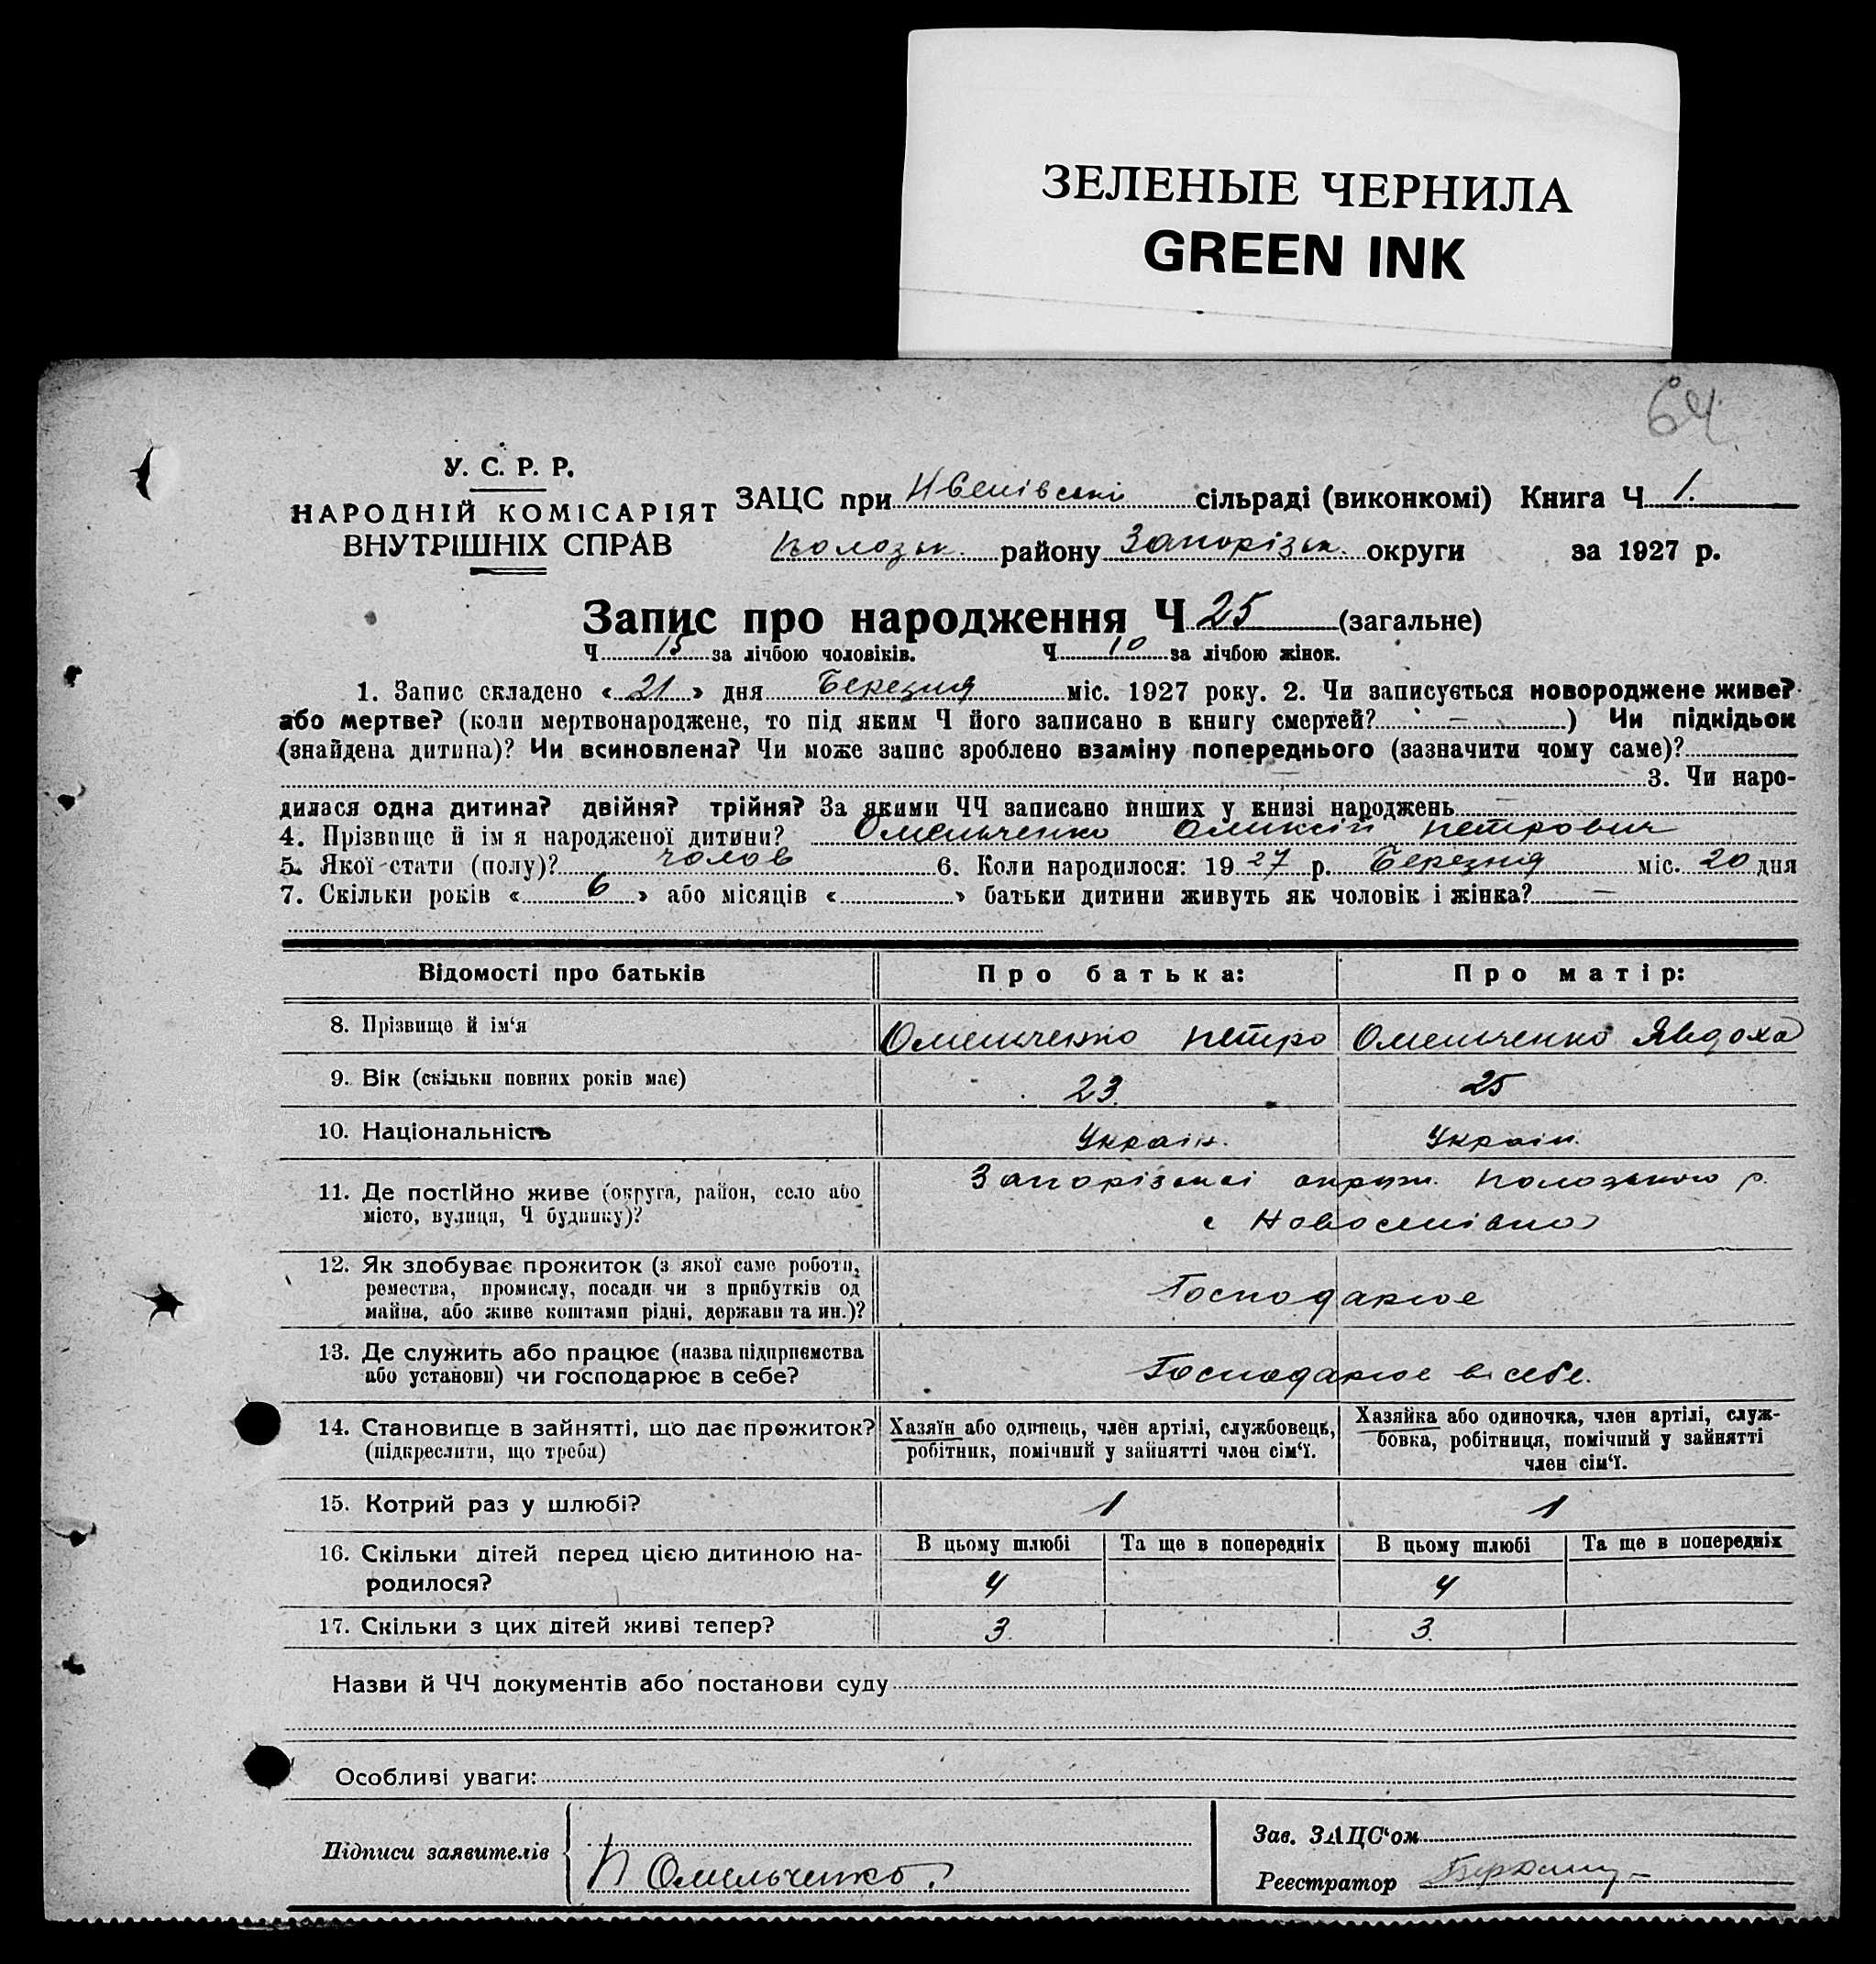 ЗЕЛЕНЫЕ ЧЕРНИЛА
GREEN INK
64
У. С. Р. Р.
НАРОДНІЙ КОМІСАРІЯТ
ВНУТРІШНІХ СПРАВ
ЗАЦС при сільраді (виконкомі) Книга Ч 1.
Полозьк. району Запорізьк. округи за 1927 р.
Запис про народження Ч 25 (загальне)
Ч 15 за лічбою чоловіків. Ч 10 за лічбою жінок.
1. Запис складено « 21 » дня Березня міс. 1927 року. 2. Чи записується новороджене живе?
або мертве? (коли мертвонароджене, то під яким Ч його записано в книгу смертей? – ) Чи підкідьок
(знайдена дитина)? Чи всиновлена? Чи може запис зроблено взаміну попереднього (зазначити чому саме)?
3. Чи наро-
дилася одна дитина? двійня? трійня? За якими ЧЧ записано инших у книзі народжень
4. Прізвище й ім я народженої дитини? Омельченко Оликсій Петрович
5. Якої стати (полу)? чолов 6. Коли народилося: 19 27 р. Березня міс. 20 дня
7. Скільки років « 6 » або місяців « » батьки дитини живуть як чоловік і жінка? –
Відомості про батьків Про батька: Про матір:
8. Прізвище й ім‘я Омельченко Петро Омельченко Явдоха
9. Вік (скільки повних років має) 23. 25
10. Національність Україн. Україн.
11. Де постійно живе (округа, район, село або
місто, вулиця, Ч будинку)?
Запорізької окрузи. Полозького р.
с Новоселівка
12. Як здобуває прожиток (з якої саме роботи,
ремества, промислу, посади чи з прибутків од
майна, або живе коштами рідні, держави та ин.)?
Господарює
13. Де служить або працює (назва підприємства
або установи) чи господарює в себе?
Господарює в себе.
14. Становище в зайнятті, що дає прожиток?
(підкреслити, що треба)
Хазяїн або одинець, член артілі, службовець,
робітник, помічний у зайнятті член сім‘ї.
Хазяйка або одиночка, член артілі, служ-
бовка, робітниця, помічний у зайнятті
член сім‘ї.
15. Котрий раз у шлюбі? 1 1
16. Скільки дітей перед цією дитиною на-
родилося?
В цьому шлюбі Та ще в попередніх В цьому шлюбі Та ще в попередніх
4 4
17. Скільки з цих дітей живі тепер? 3. 3.
Назви й ЧЧ документів або постанови суду
Особливі уваги:
Підписи заявителів
П Омельченко
Зав. ЗАЦС‘ом
Реєстратор